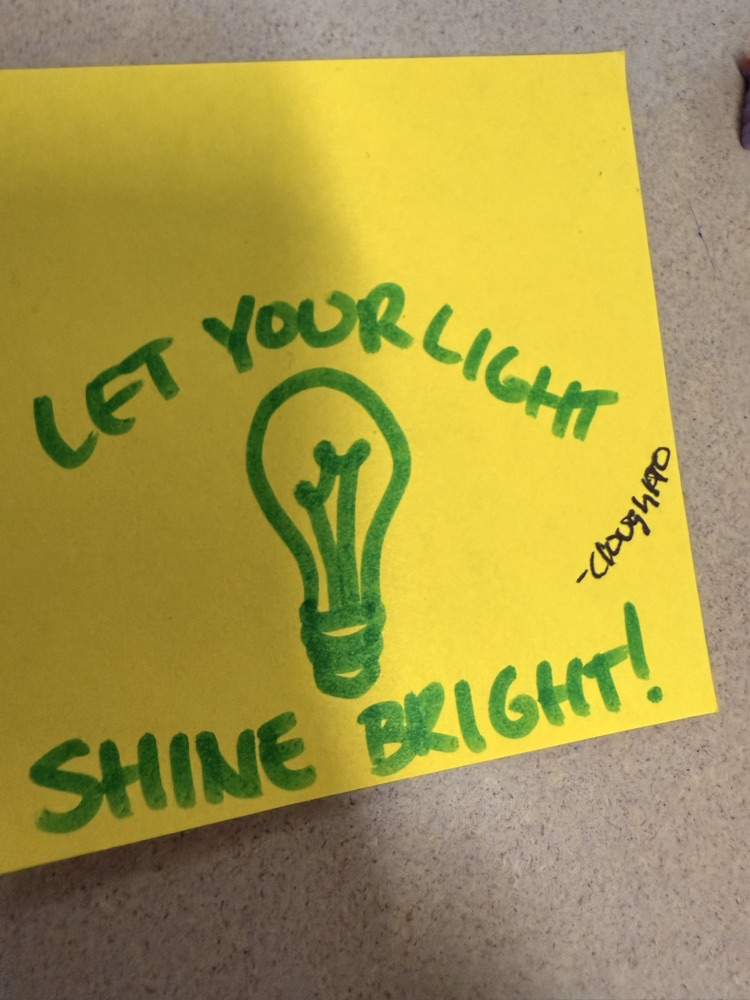 LET YOUR LIGHT
SHINE BRIGHT!